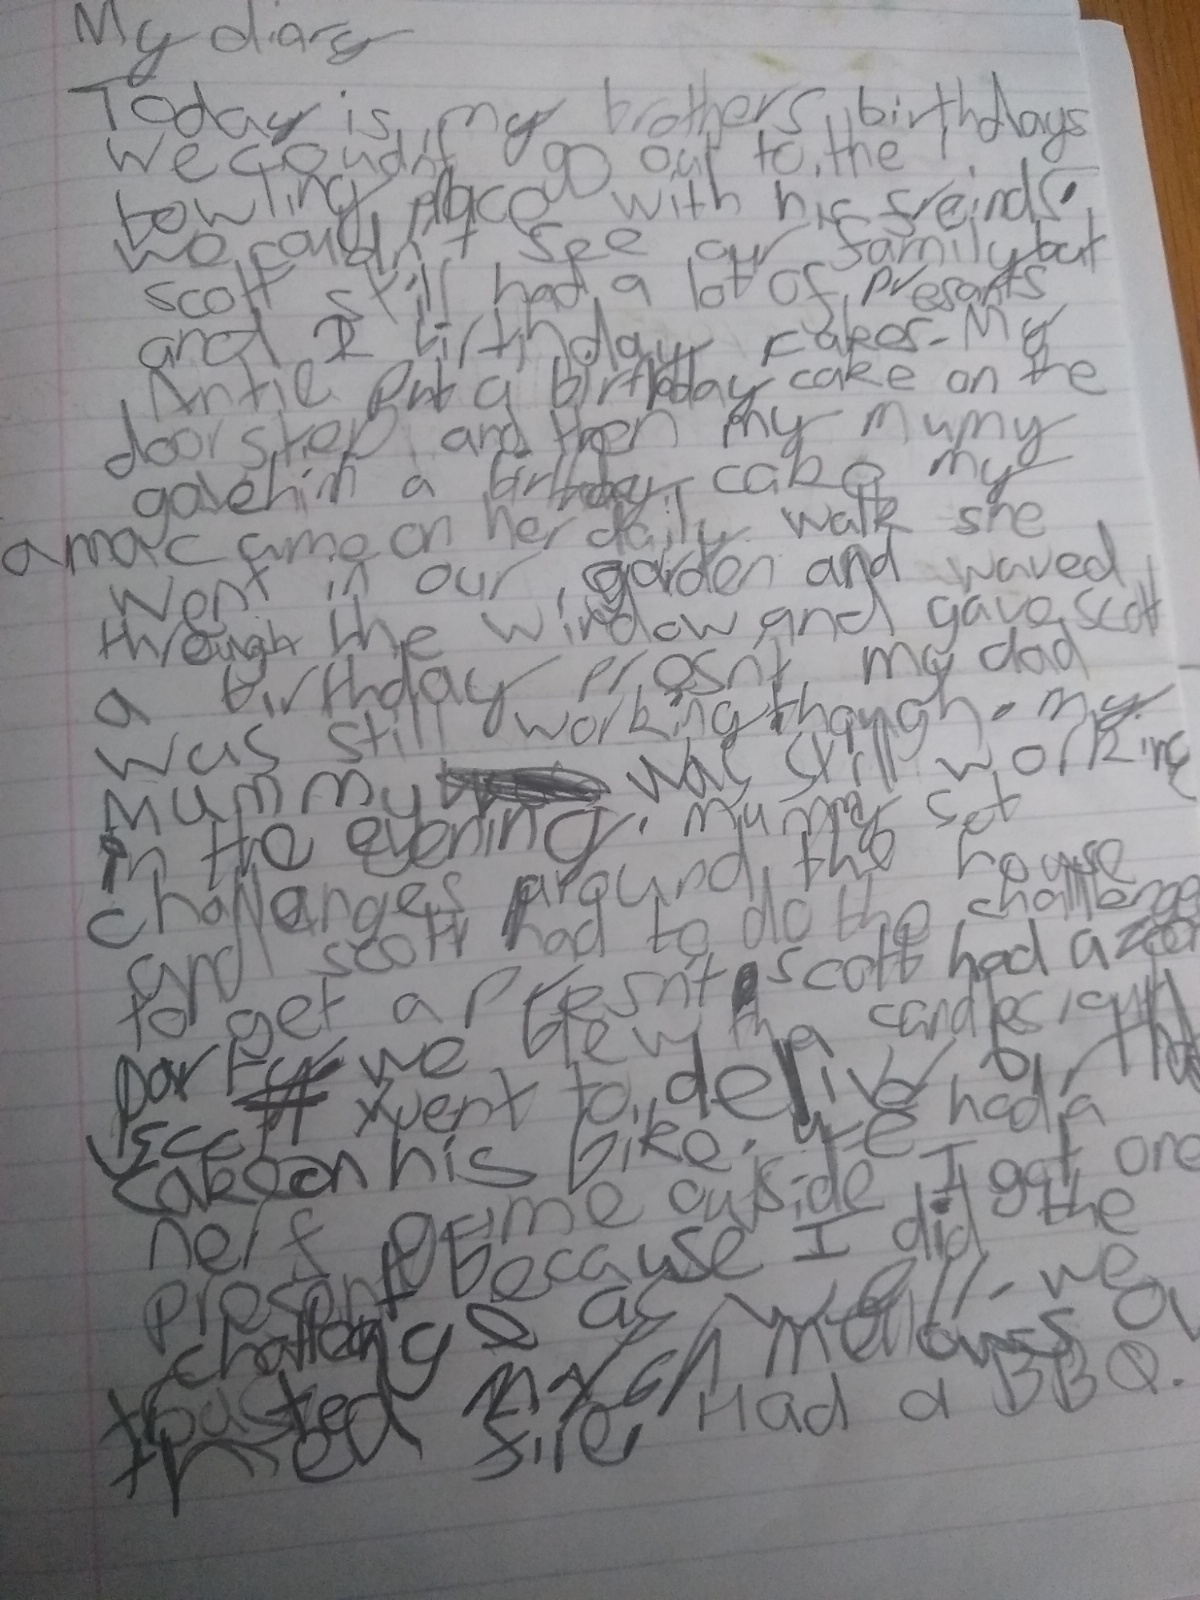 My diary
Today is my brothers birthdays
we coudn't go out to the
bowling place with his freinds.
we coudn't see our family but
scott still had a lot of presants
and 2 birthday cakes. My
Antie put a birthday cake on the
doorstep and then my mumy
gave him a birthday cake my
ama came on her daily walk she
went in our garden and waved
through the window and gave scott
a birthday presnt my dad
was still working though. my
mummy was still working
in the evening. mummy set
challanges around the house
and scott had to do the challenge
to get a presnt scott had a
party we blew the candles out
scott went to deliver
cake on his bike. we had a
nerf game outside I got one
present because I did the
challenge as well. we
tousted marsh mellows
fire. Had a BBQ.